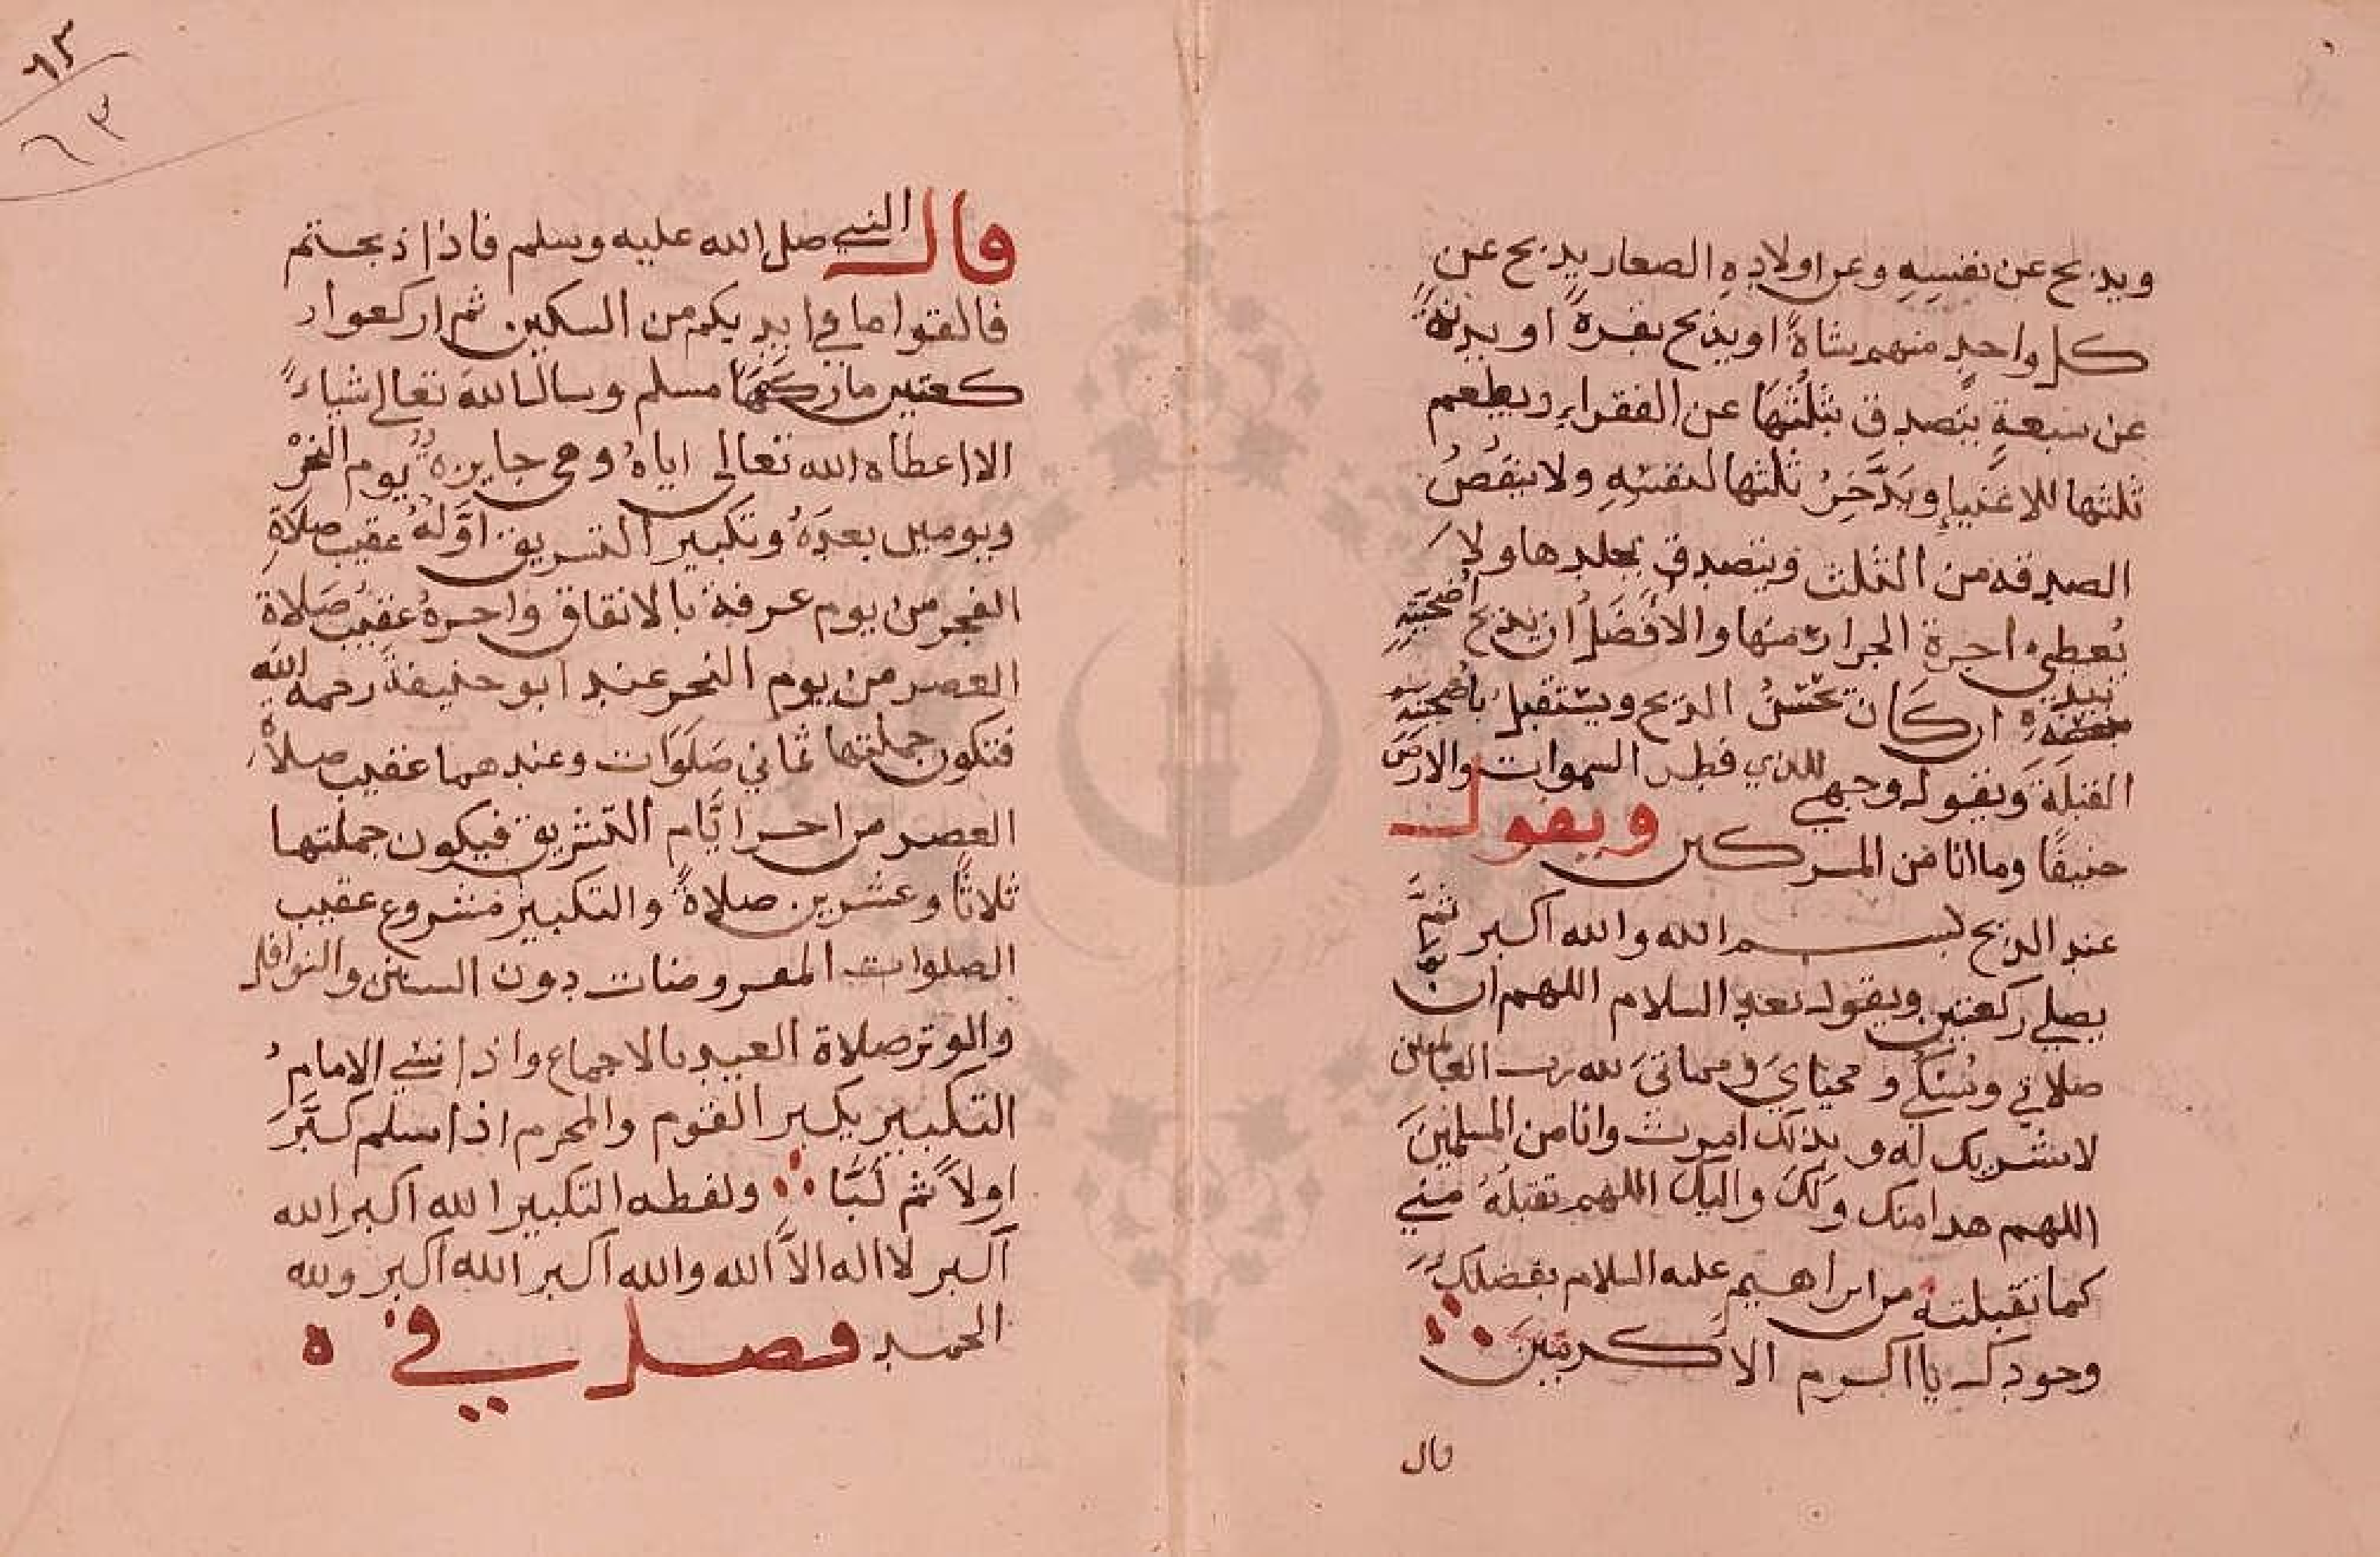 ويذبح عن نفسِهِ وعن اولادِهِ الصغار يذبح عن
كل واحدٍ منهم شاةً او يذبح بقرةً او بدنةً
عن سبعةٍ يتصدق بثلثها عن الفقراءِ ويطعم
ثلثها للاغنياءِ ويَدَّخِرُ ثلثها لنفسِهِ ولا ينقصُ
الصدقه من الثلث ويتصدق بجلدها ولا
يُعطي اجرة الجزار منها والافضل ان يذبح اضحيته
بيده ان كان يحسنُ الذبح ويستقبل باضحيته
القبلة ويقول وجهي للذي فطر السموات والارض
حنيفًا وما انا من المشركين ويقول
عند الذبح بسم الله والله اكبر ثمَّ
يصلي ركعتين ويقول بعد السلام اللهم ان
صلاتي ونُسُكي ومحياي ومماتي لله رب العالمين
لا شريك له وبذلك امرت وانا من المسلمين
اللهم هدا منك ولك واليك اللهم تقبله مني
كما تقبلته من ابراهيم عليه السلام بفضلك
وجودك يا اكرم الاكرمين
قال
٦٣
٦٣
قال النبي صلى الله عليه وسلم فاذا ذبحتم
فالقوا ما في ايديكم من السكين ثم اركعوا ر
كعتين ما ركعهما مسلم وسال الله تعالى شياءً
الا اعطاه الله تعالى اياهُ وهي جايزه يوم النحر
ويومين بعدَهُ وتكبير التشريق اوَّلهُ عقيب صلاةِ
الفجر من يوم عرفة بالاتفاق واخرهُ عقيب صلاة
العصر من يوم النحر عند ابو حنيفة رحمه الله
فتكون جملتها ثماني صَلَوَات وعندهما عقيب صلاة
العصر من اخر ايَّام التشريق فيكون جملتها
ثلاثًا وعشرين صلاةً والتكبير مشروع عقيب
الصلوات المفروضات دون السنن والنوافل
والوتر صلاة العيد بالاجماع واذا نسي الامام
التكبير يكبر القوم والمحرم اذا سلم كبَّرَ
اولاً ثم لَبَّا ولفظه التكبير الله اكبر الله
اكبر لا اله الاَّ الله والله اكبر الله اكبر ولله
الحمد فصل في ه